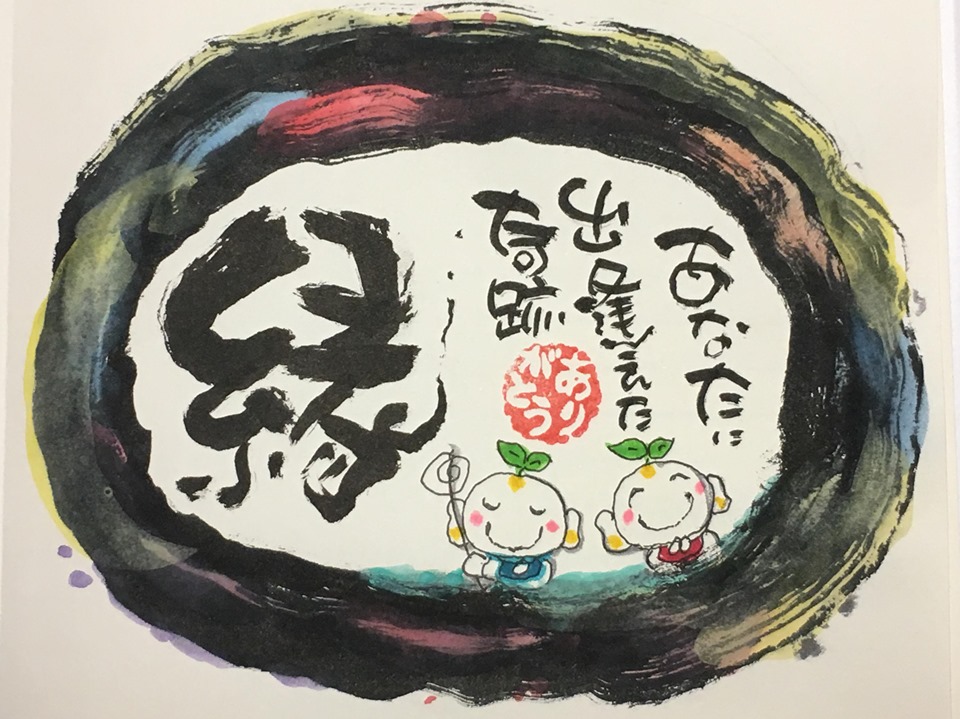 あなたに
出逢えた
奇蹟
ありがとう
縁